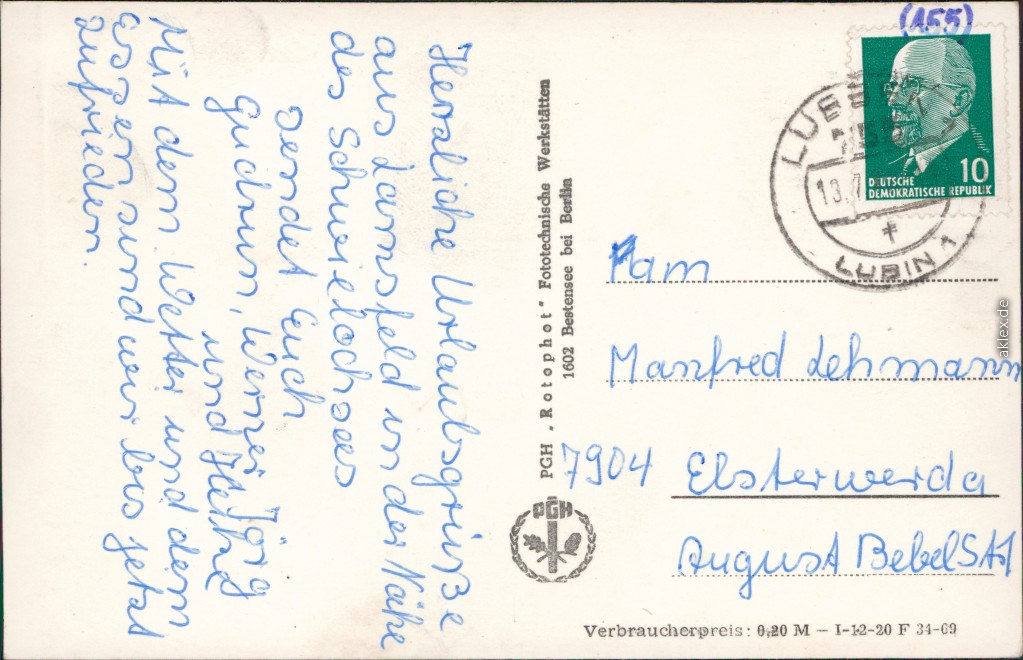 Herzliche Urlaubsgrüße
aus Jamsfeld in der Nähe
des Schwielochsees
sendet Euch
Gudrun, Werner, Jörg
und Heike
Mit dem Wetter und dem
Essen sind wir bis jetzt
zufrieden.
PGH „Rotophot" Fototechnische Werkstätten
1602 Bestensee bei Berlin
PGH
(155)
10
DEUTSCHE
DEMOKRATISCHE REPUBLIK
LUBIN 1
Fam
Manfred Lehmann
7904 Elsterwerda
August Bebel Str
Verbraucherpreis: 0,20 M – I-12-20 F 34-69
aklex.de